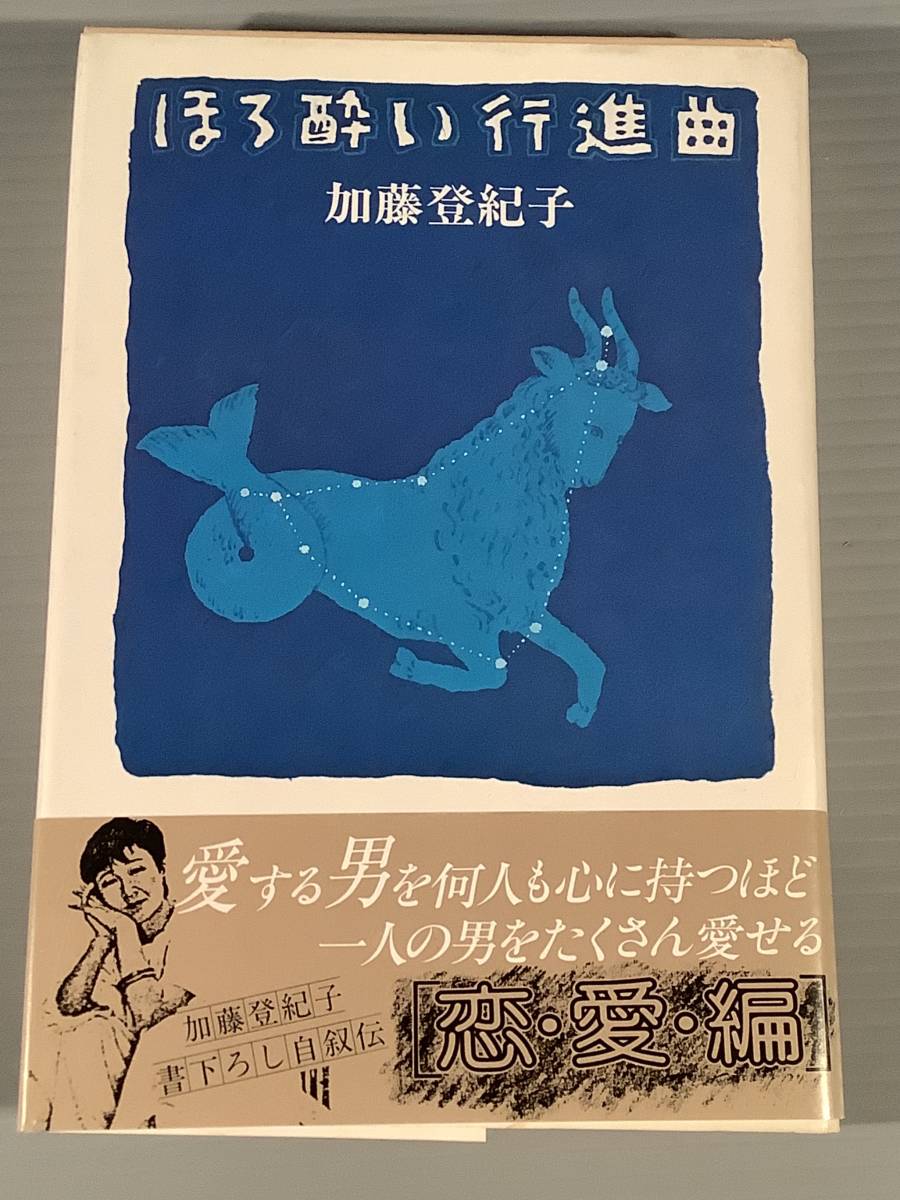 ほろ酔い行進曲
加藤登紀子
愛する男を何人も心に持つほど
一人の男をたくさん愛せる
加藤登紀子
書下ろし自叙伝
[恋・愛・編]